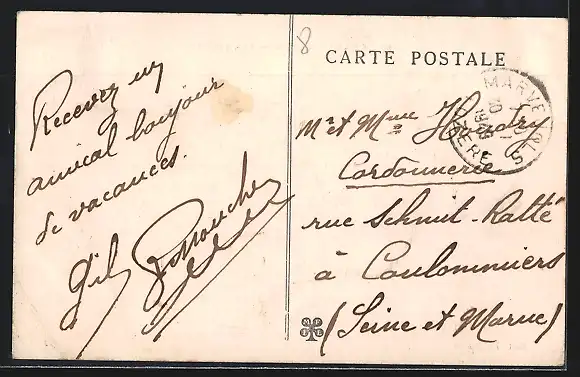 Recevez un
amical bonjour
de vacances.
Gil
8
CARTE POSTALE
MARVEJOLS
LOZERE
Mr et Mme
Cordonnerie
rue Schmit-Ratté
à Coulommiers
(Seine et Marne)